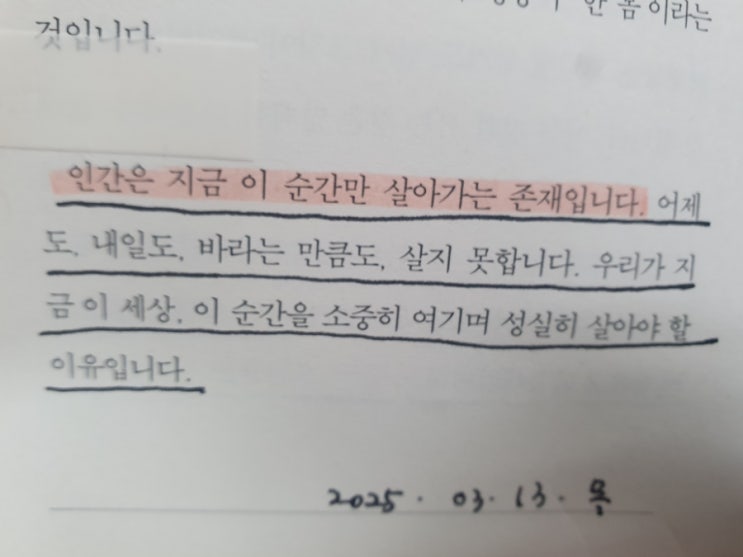 한 몸이라는
것입니다.
인간은 지금 이 순간만 살아가는 존재입니다. 어제
도, 내일도, 바라는 만큼도, 살지 못합니다. 우리가 지
금 이 세상, 이 순간을 소중히 여기며 성실히 살아야 할
이유입니다.
2025. 03. 13. 목